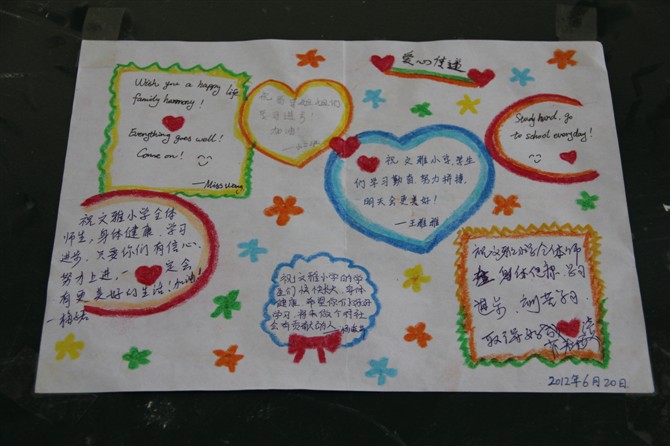 爱心传递
Wish you a happy life
family harmony!
Everything goes well!
Come on!
—Miss Wang
学习进步!
加油!
祝文雅小学,学生
们学习勤奋,努力拼搏,
明天会更美好!
—王雅雅
Study hard, go
to school everyday!
祝文雅小学全体
师生,身体健康,学习
进步,只要你们有信心、
努力上进,一定会
有更美好的生活!加油!
祝文雅小学的师
生们快快长大,身体
健康,希望你们好好
学习,将来做个对社
会有贡献的人
祝文雅小学全体师
生身体健康 学习
进步
取得好
2012年6月20日